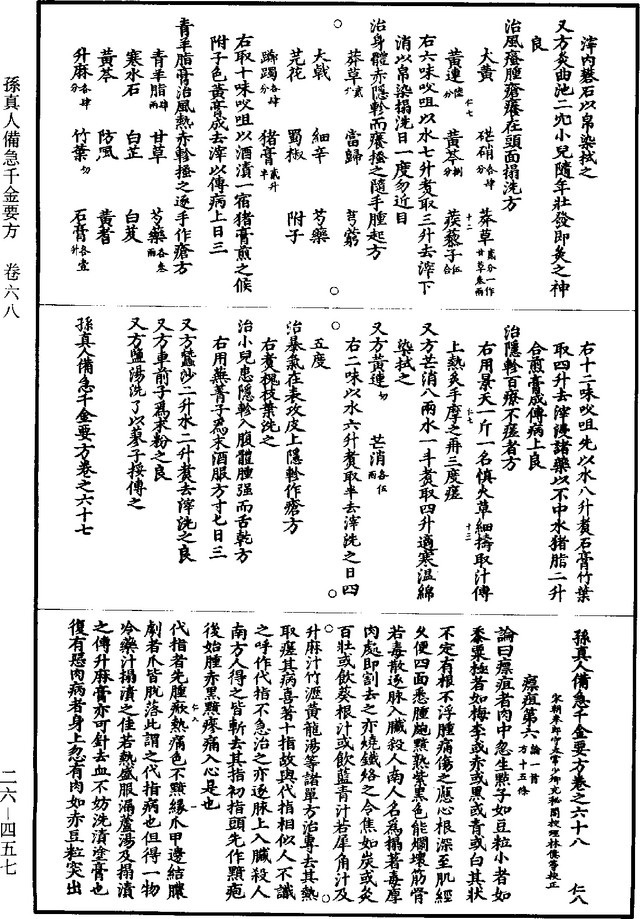 滓內礬石以帛染拭之
又方灸曲池二穴小兒隨年壯發即灸之神
良
治風瘙腫瘡癢在頭面搨洗方
大黃 硭硝各肆分 莽草貳分一作甘草叁兩
黃連陸分 黃芩捌分 蒺藜子伍合
仁七 十二
右六味㕮咀以水七升煮取三升去滓下
消以帛染搨洗日一度勿近目
治身體赤隱軫而癢搔之隨手腫起方
莽草貳分 當歸 芎藭
大戟 細辛 芍藥
芫花 蜀椒 附子
躑躅各肆分 猪膏貳升半
右取十味㕮咀以酒漬一宿猪膏煎之候
附子色黃膏成去滓以傅病上日三
青羊脂膏治風熱赤軫搔之逐手作瘡方
青羊脂肆兩 甘草 芍藥各叁兩
寒水石 白芷 白芨
黃芩 防風 黃耆
升麻各肆分 竹葉切 石膏各壹升
右十二味㕮咀先以水八升煮石膏竹葉
取四升去滓浸諸藥以不中水猪脂二升
合煎膏成傅病上良
治隱軫百療不瘥者方
右用景天一斤一名慎火草細擣取汁傅
仁七 十三
上熱灸手摩之再三度瘥
又方芒消八兩水一斗煮取四升適寒溫綿
染拭之
又方黃連切 芒消各伍兩
右二味以水六升煮取半去滓洗之日四
五度
治暴氣在表攻皮上隱軫作瘡方
右煮槐枝葉洗之
治小兒患隱軫入腹體腫强而舌乾方
右用蕪菁子為末酒服方寸七日三
又方蠶沙二升水二升煮去滓洗之良
又方車前子為末粉之良
又方鹽湯洗了以蓼子挼傅之
孫真人備急千金要方卷之六十七
孫真人備急千金要方卷之六十八 仁八
宋朝奉郎守太常少卿充秘閣校理林億等校正
瘭疽第六論一首方十五條
論曰瘭疽者肉中忽生點子如豆粒小者如
黍粟極者如梅李或赤或黑或青或白其狀
不定有根不浮腫痛傷之應心根深至肌經
久便四面悉腫皰黯熟紫黑色能爛壞筋骨
若毒散逐脉入臟殺人南人名為搨著毒厚
肉處即割去之亦燒鐵絡之令焦如炭或灸
百壯或飲葵根汁或飲藍青汁若犀角汁及
升麻汁竹瀝黃龍湯等諸單方治專去其熱
取瘥其病喜著十指故與代指相似人不識
之呼作代指不急治之亦逐脉上入臟殺人
南方人得之皆斬去其指初指頭先作黯皰
後始腫赤黑黲疼痛入心是也
仁八 一
代指者先腫焮熱痛色不黯緣爪甲邊結膿
劇者爪皆脱落此謂之代指病也但得一物
冷藥汁搨漬之佳若熱盛服漏蘆湯及搨漬
之傅升麻膏亦可針去血不妨洗漬塗膏也
復有惡肉病者身上忽有肉如赤豆粒突出
孫真人備急千金要方 卷六八
二六—四五七